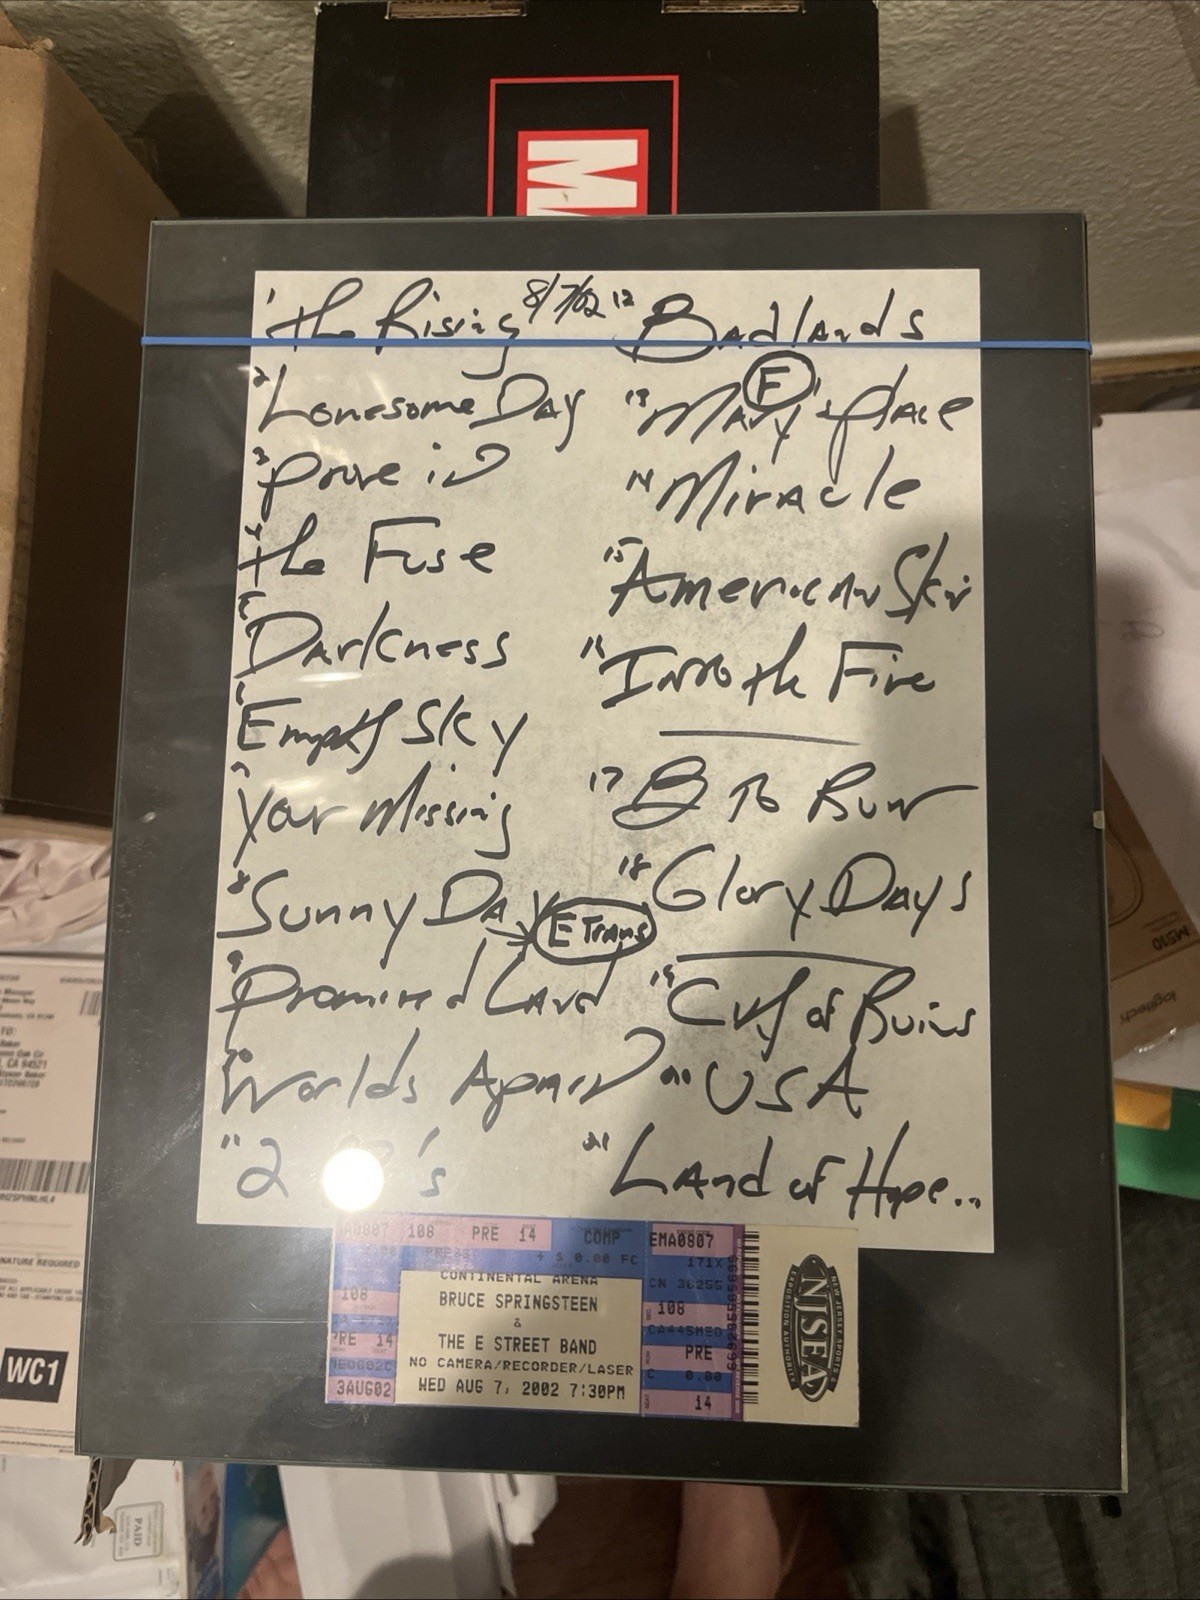 M
8/7/02
1 The Rising
2 Lonesome Day
3 Prove it
4 The Fuse
5 Darkness
6 Empty Sky
7 Your Missing
8 Sunny Day
E Trans
9 Promised Land
10 Worlds Apart
11 2 's
12 Badlands
F
13 Mary's place
14 Miracle
15 American Skin
16 Into the Fire
17 B to Run
18 Glory Days
19 City of Ruins
20 USA
21 Land of Hope..
A0807 108 PRE 14 COMP EMA0807
PRESS + $ 0.00 FC 171X
CONTINENTAL ARENA
108 BRUCE SPRINGSTEEN 108
&
PRE 14 THE E STREET BAND PRE
NO CAMERA/RECORDER/LASER C 0.00
3AUG02 WED AUG 7, 2002 7:30PM 14
CN 36255
CA445MED
NEW JERSEY SPORTS &
EXPOSITION AUTHORITY
NJSEA
WC1
PAID
M510
logitech
, CA 94521